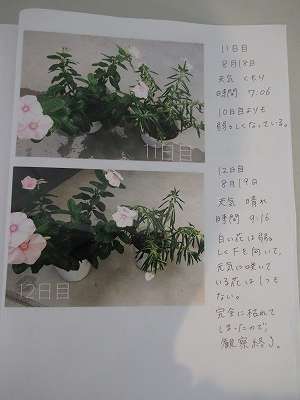 11日目
8月18日
天気 くもり
時間 7:06
10日目よりも
弱々しくなっている。
11日目
12日目
8月19日
天気 晴れ
時間 9:16
白い花は弱々
しく下を向いて、
元気に咲いて
いる花は1つも
ない。
完全に枯れて
しまったので
観察終了。
12日目